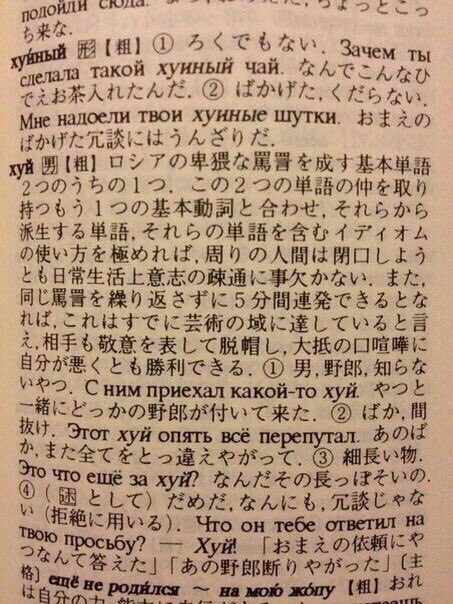 подойди сюда.
ちょっとこっ
ち来な.
ху́йный 形【粗】① ろくでもない. Зачем ты
сделала такой хуиный чай. なんでこんなひ
でえお茶入れたんだ. ② ばかげた, くだらない.
Мне надоели твои хуиные шутки. おまえの
ばかげた冗談にはうんざりだ.
хуй 男【粗】ロシアの卑猥な罵詈を成す基本単語
2つのうちの1つ. この2つの単語の仲を取り
持つもう1つの基本動詞と合わせ, それらから
派生する単語, それらの単語を含むイディオム
の使い方を極めれば, 周りの人間は閉口しよう
とも日常生活上意志の疎通に事欠かない. また,
同じ罵詈を繰り返さずに5分間連発できるとな
れば, これはすでに芸術の域に達していると言
え, 相手も敬意を表して脱帽し, 大抵の口喧嘩に
自分が悪くとも勝利できる. ① 男, 野郎, 知らな
いやつ. С ним приехал какой-то хуй. やつと
一緒にどっかの野郎が付いて来た. ② ばか, 間
抜け. Этот хуй опять всё перепутал. あのば
か, また全てをとっ違えやがって. ③ 細長い物.
Это что ещё за хуй? なんだその長っぽそいの.
④ (述 として) だめだ, なんにも, 冗談じゃな
い (拒絶に用いる). Что он тебе ответил на
твою просьбу? — Хуй! 「おまえの依頼にや
つなんて答えた」「あの野郎断りやがった」〔主
格〕 ещё не роди́лся ~ на мою жо́пу【粗】おれ
は自分の力